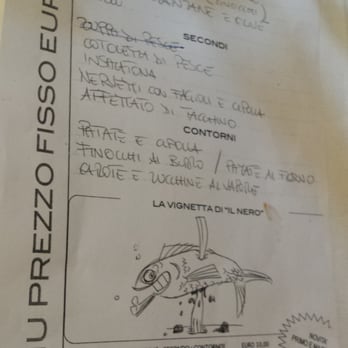 MELANZANE E OLIVE
SECONDI
ZUPPA DI PESCE
COTOLETTA DI PESCE
INSALATONA
NERVETTI CON FAGIOLI E CIPOLLA
AFFETTATO DI TACCHINO
CONTORNI
PATATE E CIPOLLA
FINOCCHI AL BURRO / PATATE AL FORNO
CAROTE E ZUCCHINE AL VAPORE
LA VIGNETTA DI "IL NERO"
U PREZZO FISSO EUR
CONTORNO
EURO
NOVITÀ
PRIMO E